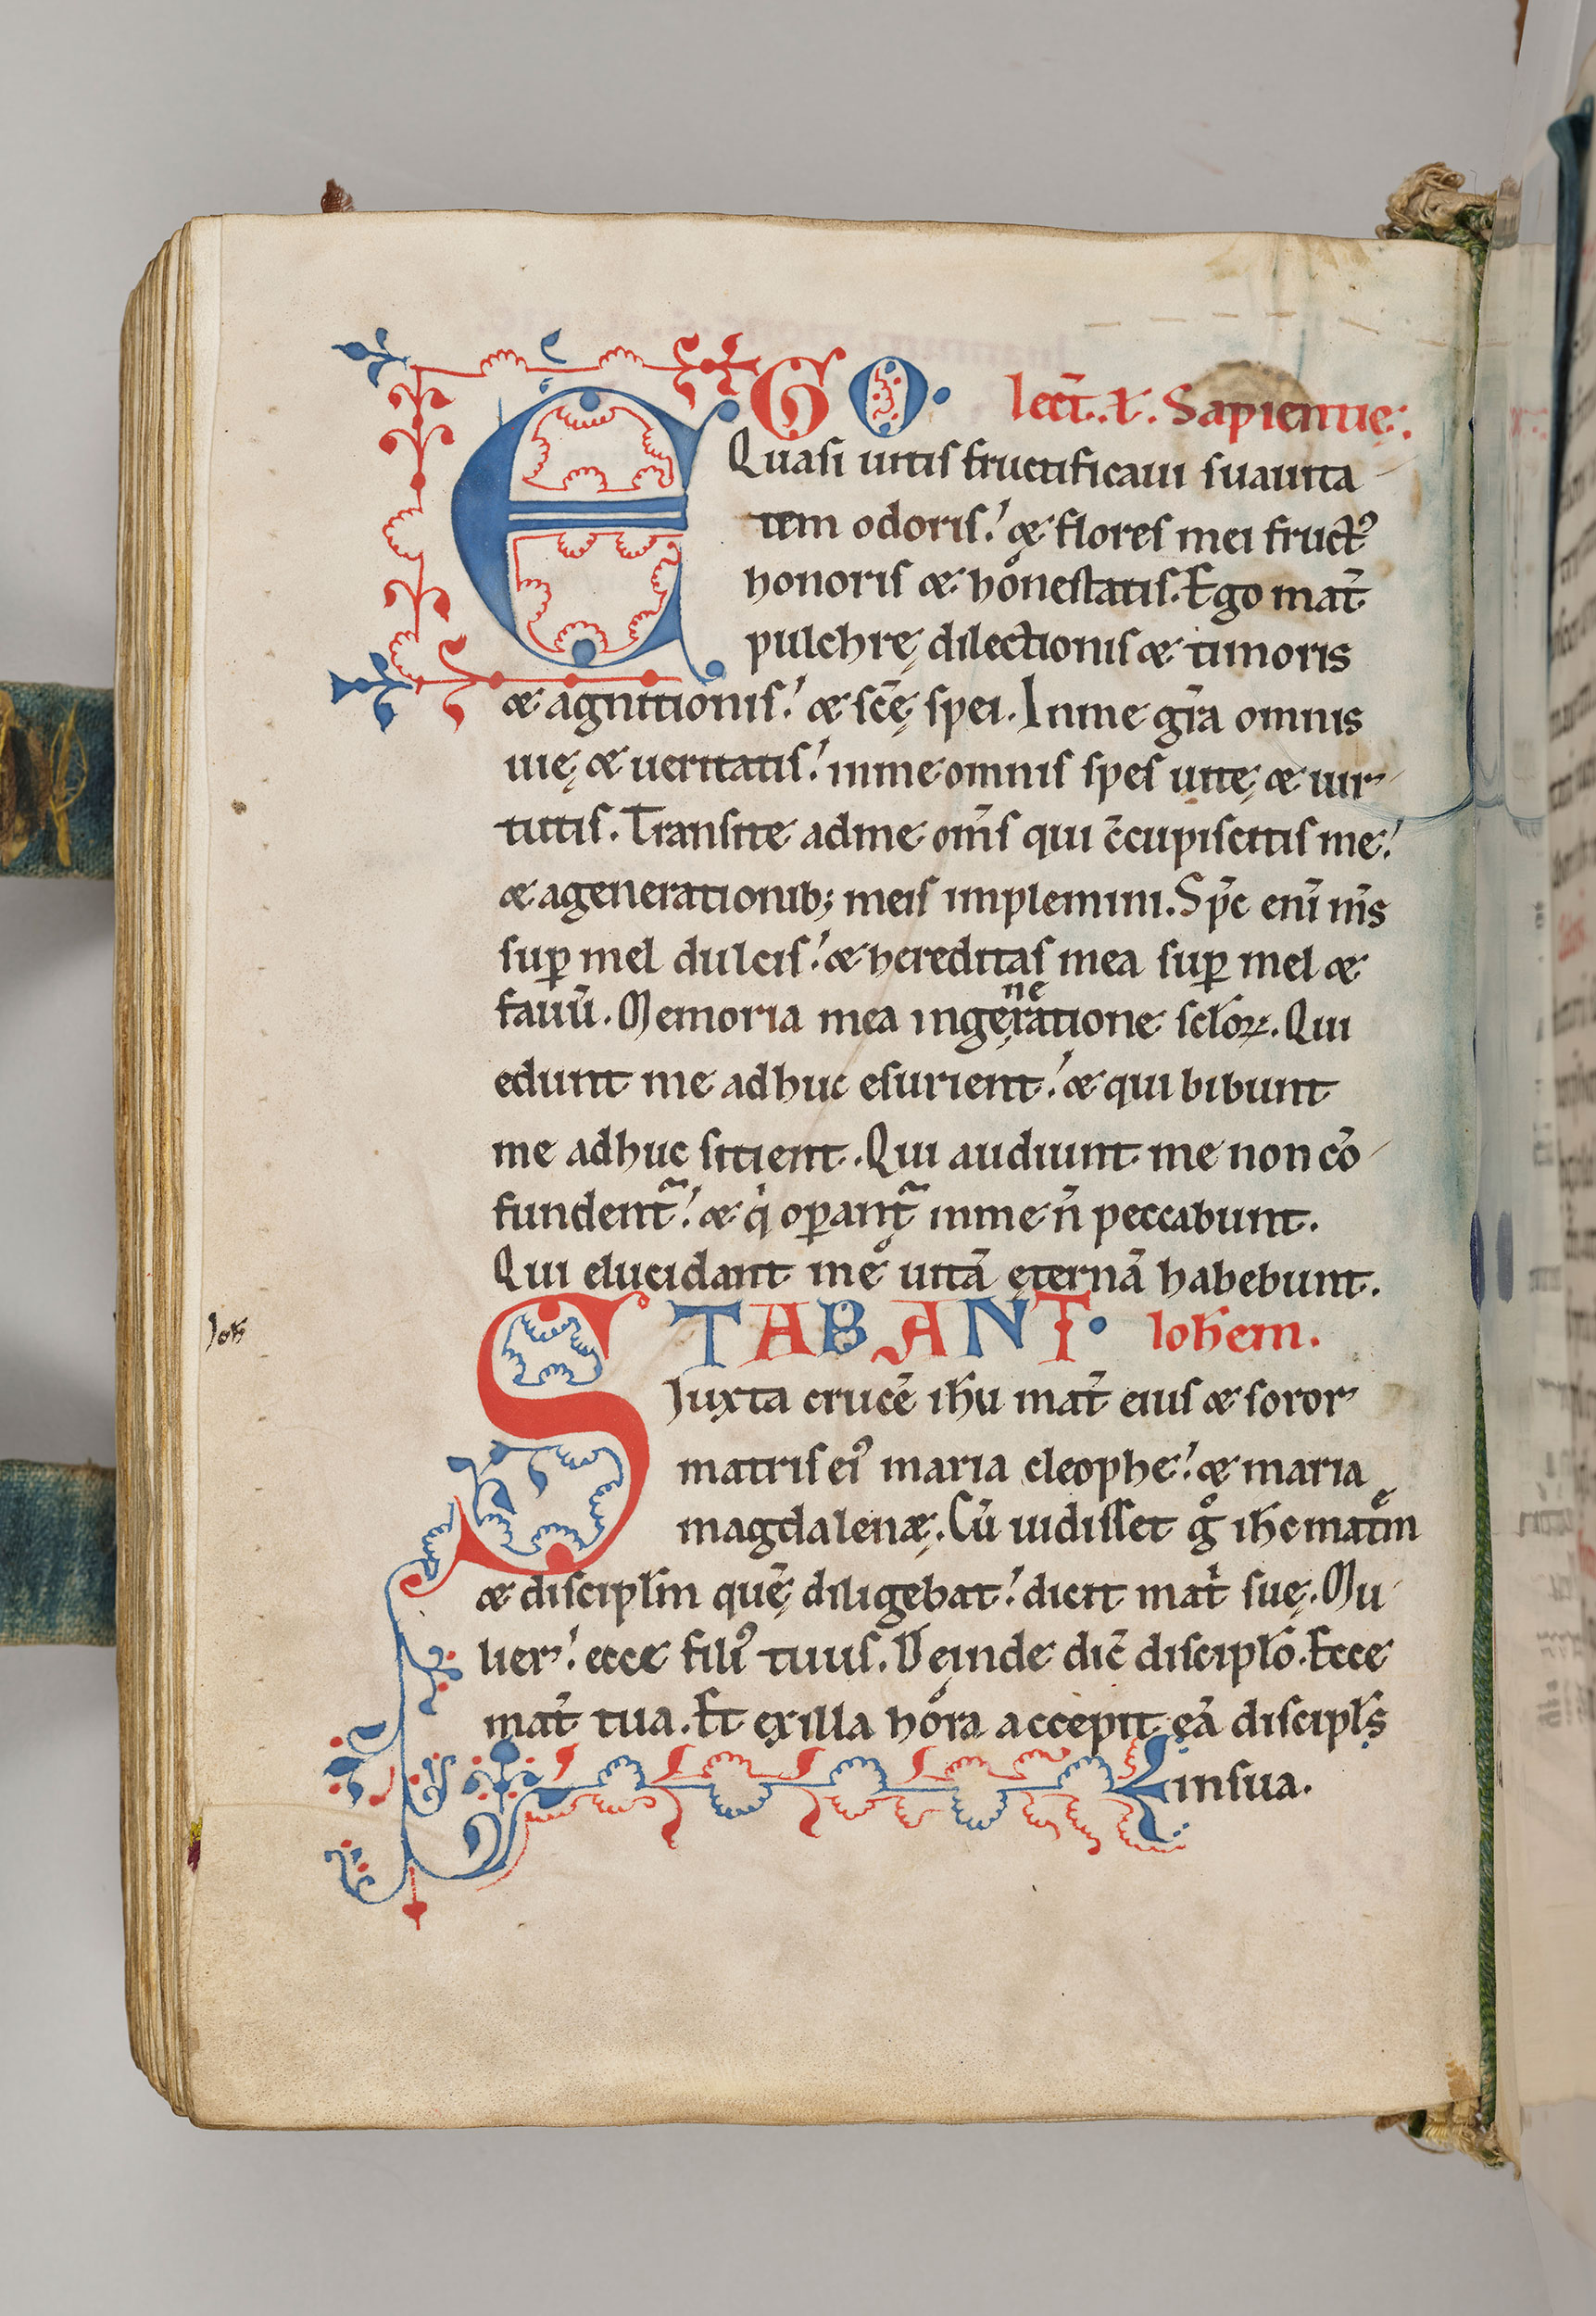 EGO. lect̄. l. Sapientię:.
Quasi uitis fructificaui suauita
tem odoris! & flores mei fruct᷒
honoris & honestatis. Ego mat̄
pulchrę dilectionis & timoris
& agnitionis! & scę̄ spei. Inme gr̄a omnis
uię & ueritatis! inme omnis spes uitę & uir
tutis. Transite adme om̄s qui c̄cupiscitis me!
& agenerationib; meis implemini. Sp̄c eni̅ m̄s
suꝑ mel dulcis! & hereditas mea suꝑ mel &
fauū. Memoria mea ingeneratione scl̄oꝝ. Qui
edunt me adhuc esurient! & qui bibunt
me adhuc sitient. Qui audiunt me non cō
fundent᷑! & qi oꝑant᷑ inme n̄ peccabunt.
Qui elucidant me uitā ęternā habebunt.
STABANT. Ioh̄em.
Ioh̄
Iuxta crucē ih̄u mat̄ eius & soror
matris ei᷒ maria cleophe! & maria
magdalenæ. Cū uidisset gͦ ih̄c matem̄
& discipl̄m quē diligebat! dicit mat̄i suę. Mu
lier! ecce fili᷒ tuus. Deinde dic̄ discipl̄o. Ecce
mat̄ tua. Et exilla hora accepit eā discipl̄s
insua.